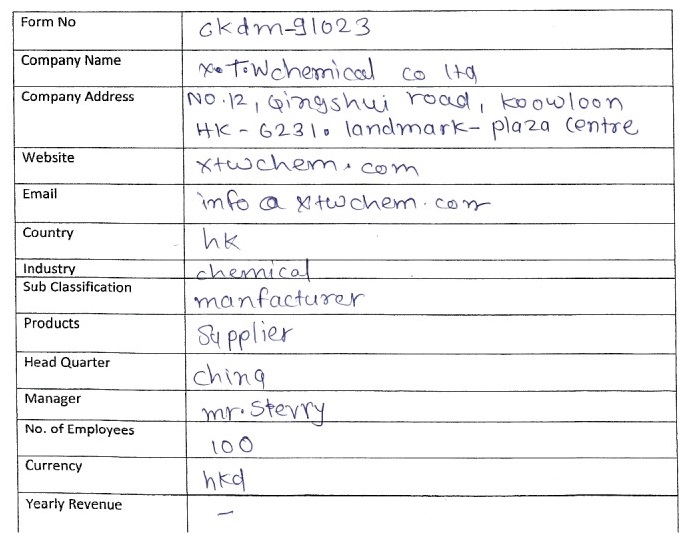 Form No Ckdm-91023
Company Name x.T.Wchemical co ltd
Company Address NO.12, Qingshui road, koowloon
HK - 6231. landmark- plaza centre
Website xtwchem.com
Email info@xtwchem.com
Country hk
Industry chemical
Sub Classification manfacturer
Products Supplier
Head Quarter china
Manager mr. Sterry
No. of Employees 100
Currency hkd
Yearly Revenue -